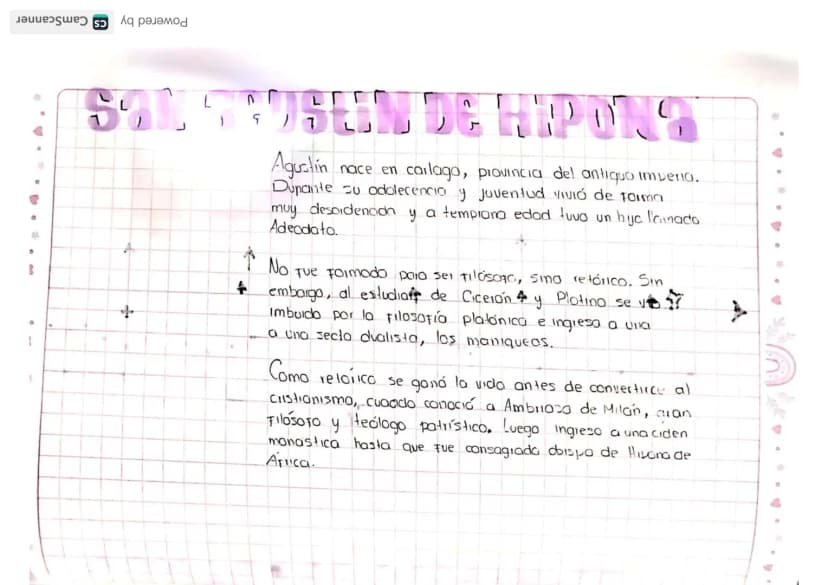 Powered by CS CamScanner
San Agustín DE HiPONa
Agustín nace en cartago, provincia del antiguo imperio.
Durante su adolecencia y juventud vivió de forma
muy desordenada y a temprana edad tuvo un hijo llamado
Adeodato.
No fue formado para ser filósofo, sino retórico. Sin
embargo, al estudiar de Cicerón y Plotino se ve
imbuido por la filosofía platónica e ingreso a una
a una secta dualista, los maniqueos.
Como retórico se ganó la vida antes de convertirce al
cristianismo, cuando conoció a Ambrioso de Milán, gran
filósofo y teólogo patrístico. Luego ingreso a una orden
monastica hasta que fue consagrado obispo de Hipona de
África.